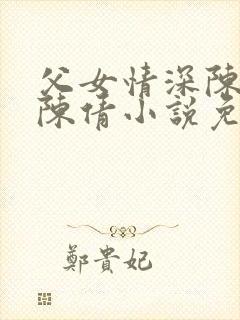 父女情深陳
陳倩小說免
鄭貴妃